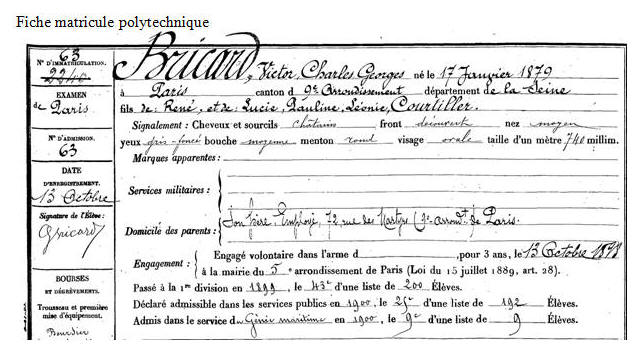 Fiche matricule polytechnique
63
N° D'IMMATRICULATION.
2240
EXAMEN
de Paris
N° D'ADMISSION.
63
DATE
D'ENREGISTREMENT.
13 Octobre
Signature de l'Élève :
GBricard
BOURSES
ET DÉGRÈVEMENTS.
Trousseau et première
mise d'équipement.
Boursier
Bricard, Victor, Charles, Georges né le 17 Janvier 1879
à Paris canton d 9e Arrondissement département de la Seine
fils de : René, et de : Lucie, Pauline, Léonie, Courtiller.
Signalement : Cheveux et sourcils châtain front découvert nez moyen
yeux gris-foncé bouche moyenne menton rond visage ovale taille d'un mètre 740 millim.
Marques apparentes :
Services militaires :
Domicile des parents : Son père, Employé, 72, rue des Martyrs (9e arrondt) de Paris.
Engagement : Engagé volontaire dans l'arme d , pour 3 ans, le 13 Octobre 1898
à la mairie du 5e arrondissement de Paris (Loi du 15 juillet 1889, art. 28).
Passé à la 1re division en 1899, le 43e d'une liste de 200 Élèves.
Déclaré admissible dans les services publics en 1900, le 25e d'une liste de 192 Élèves.
Admis dans le service du Génie maritime en 1900, le 9e d'une liste de 9 Élèves.